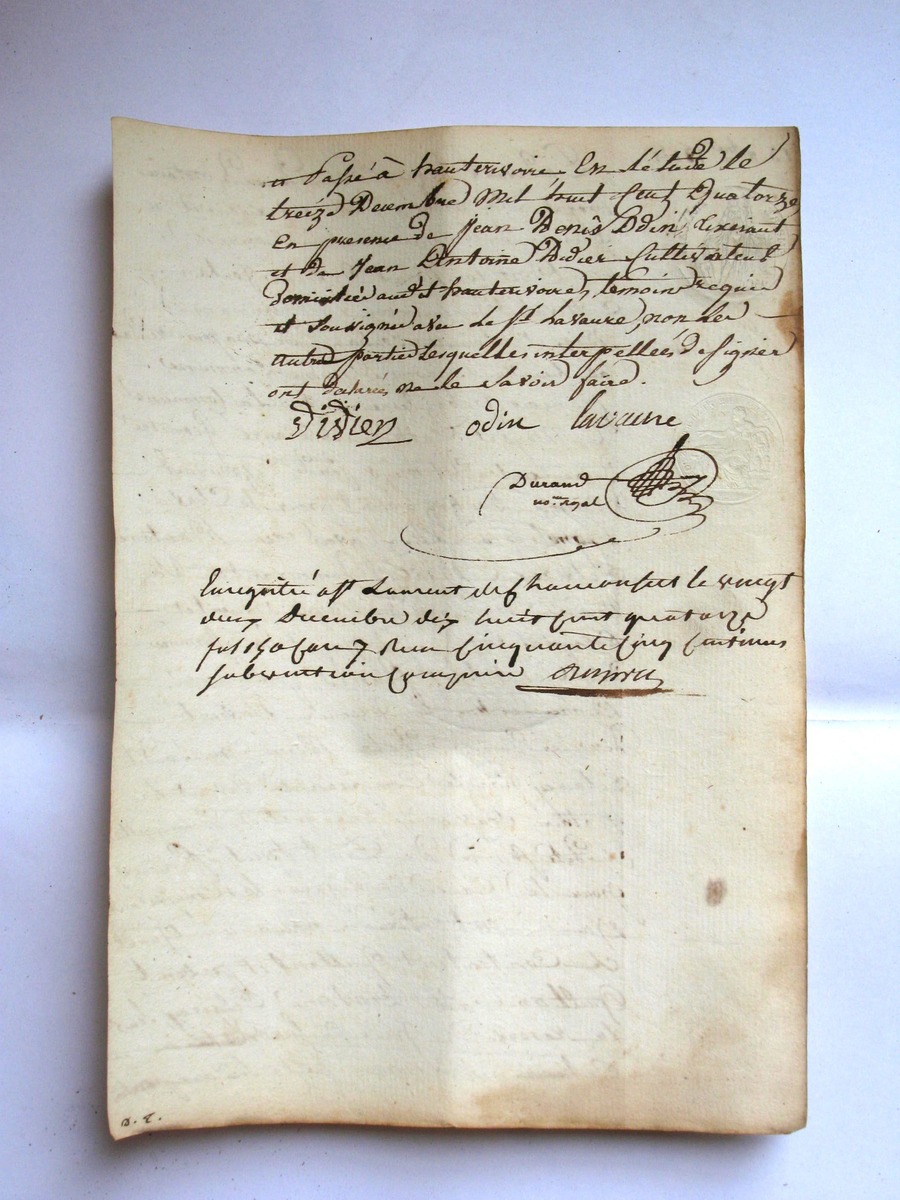 Passé à hauterivoire En l'étude le
treize Decembre Mil huit Cent Quatorze
En presence de Jean Denis Odin Tixerant
et de Jean Antoine Didier Cultivateur
domicilié aud.t hauterivoire, temoins requis
et Soussignés avec le S.r Lavaure, non les
autres parties lesquelles interpellées de signer
ont declarés ne le Savoir faire.
Didier odin lavaure
Durand
no.re royal
Enregistré a St Laurent de Chamousset le vingt
deux Decembre dix huit cent quatorze
fol 150 Case 7 Reçu Cinquante Cinq Centimes
subvention comprise
D. E.